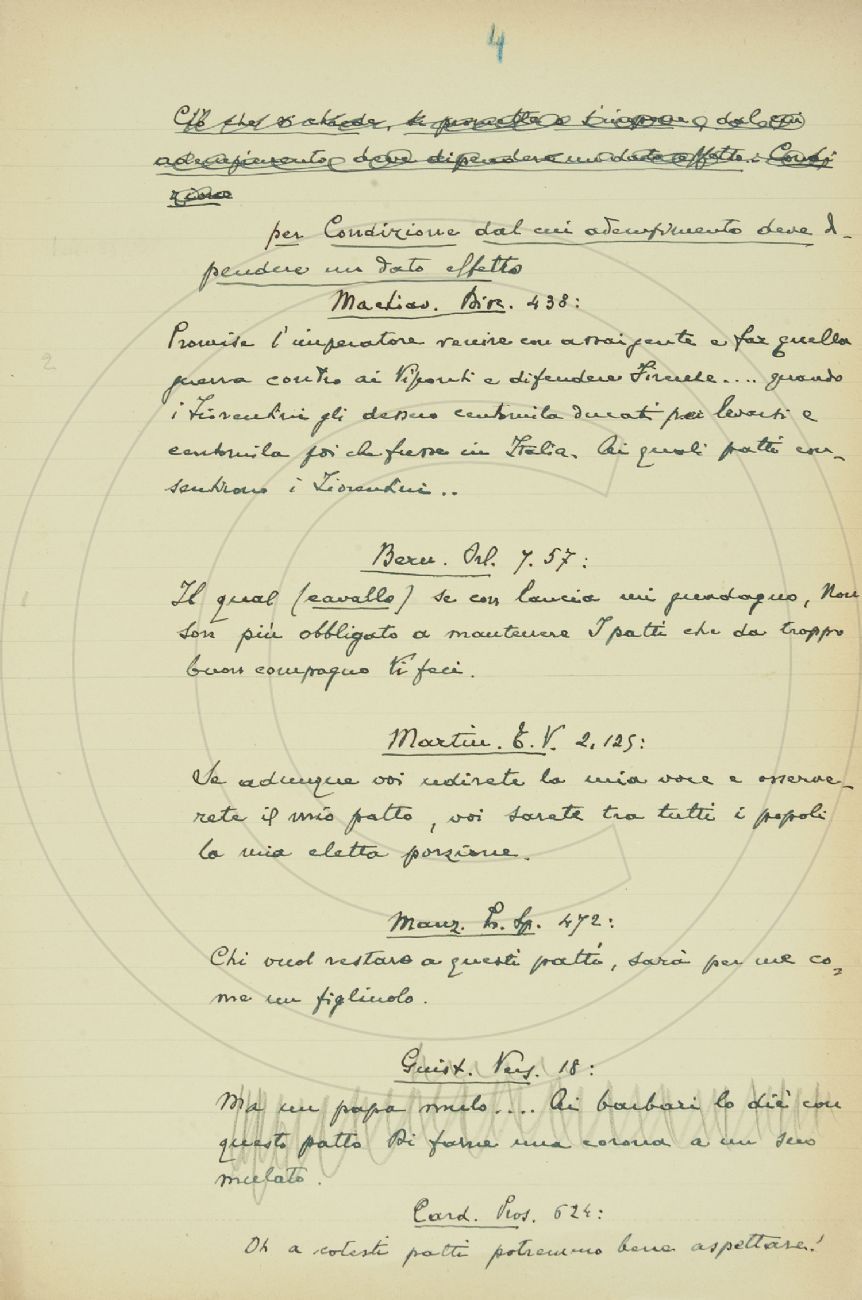 4
Ciò che si chiede, si permette o s'impone, dal cui
adempimento deve dipendere un dato effetto: Condi
zione
per Condizione dal cui adempimento deve di-
pendere un dato effetto
Machiav. Disc. 438:
Promise l'imperatore venire con assai gente e far quella
guerra contro ai Visconti e difendere Firenze.... quando
i Fiorentini gli dessero centomila ducati per levarsi e
centomila poi che fusse in Italia. Ai quali patti con-
sentirono i Fiorentini..
Bern. Orl. 7. 57:
Il qual (cavallo) se con lancia mi guadagno, Non
son più obbligato a mantenere I patti che da troppo
buon compagno Vi feci.
Martin. T. V. 2. 125:
Se adunque voi udirete la mia voce e osserve-
rete il mio patto, voi sarete tra tutti i popoli
la mia eletta porzione.
Manz. Pr. Sp. 472:
Chi vuol restare a questi patti, sarà per me co-
me un figliuolo.
Giust. Vers. 18:
Ma un papa mulo.... Ai barbari lo diè con
questo patto Di farne una corona a un suo
mulatto.
Card. Pros. 624:
Oh a cotesti patti potremmo bene aspettare!